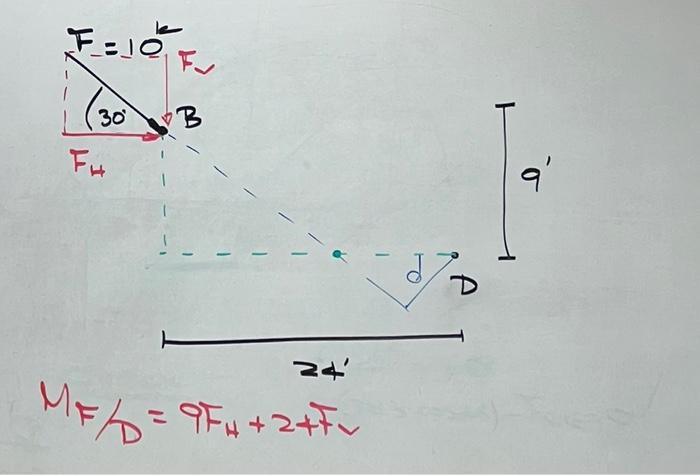 F = 10k
Fv
30°
B
FH
9'
d
D
24'
MF/D = 9FH + 24Fv